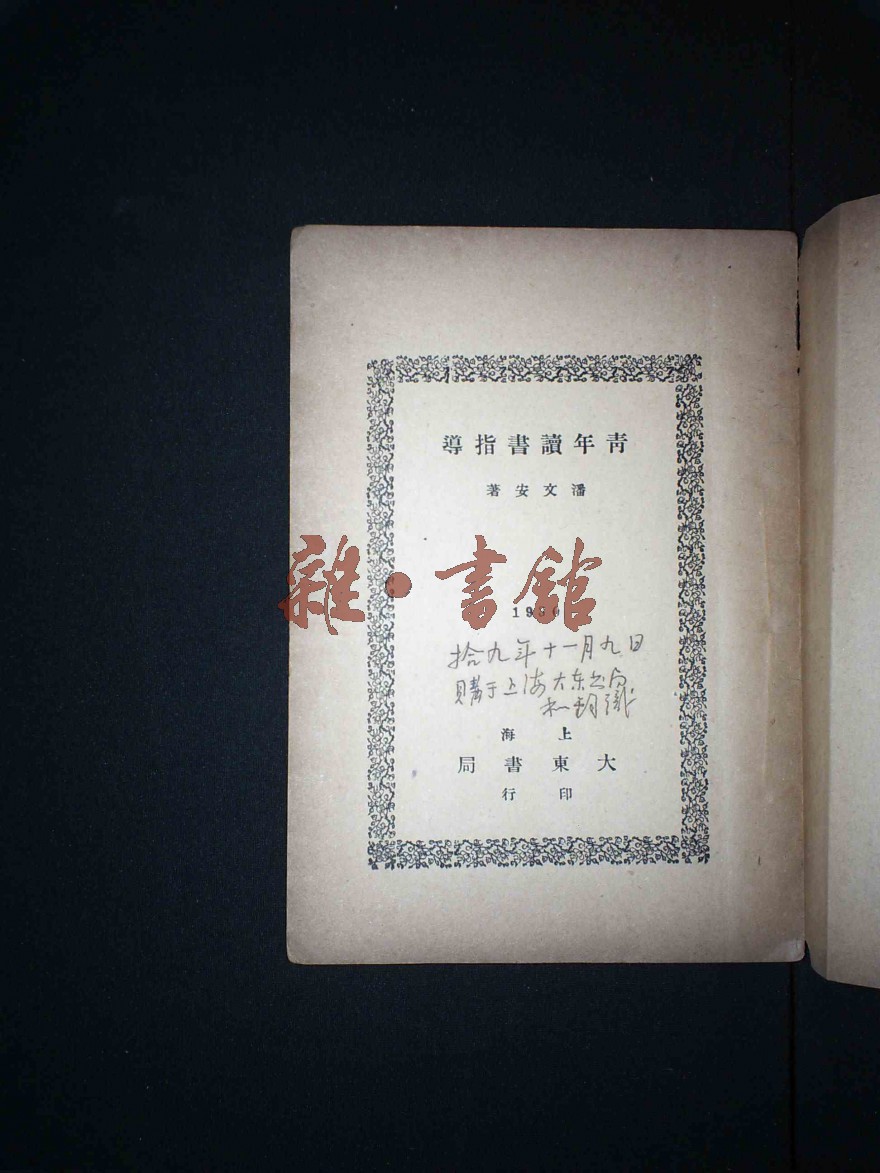 青年讀書指導
潘文安著
雜·書館
1930
拾九年十一月九日
購于上海大东书局
上海
大東書局
印行